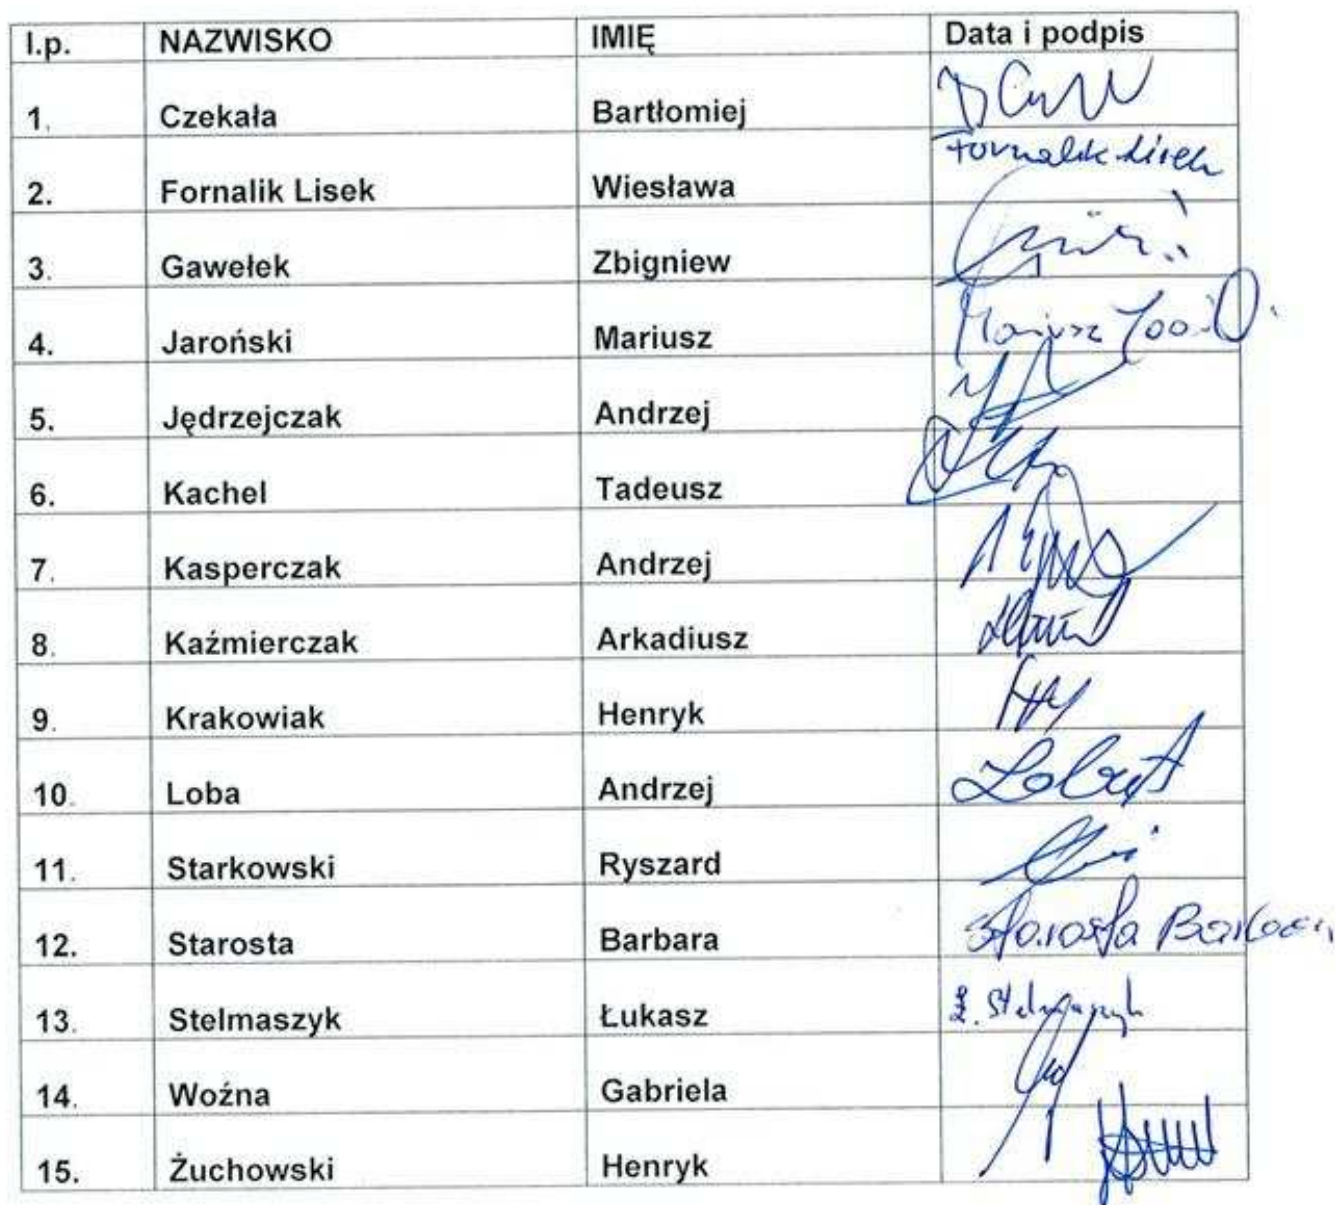 l.p. NAZWISKO IMIĘ Data i podpis
1. Czekała Bartłomiej
2. Fornalik Lisek Wiesława Fornalik Lisek
3. Gawełek Zbigniew
4. Jaroński Mariusz Mariusz
5. Jędrzejczak Andrzej
6. Kachel Tadeusz
7. Kasperczak Andrzej
8. Kaźmierczak Arkadiusz
9. Krakowiak Henryk
10. Loba Andrzej
11. Starkowski Ryszard
12. Starosta Barbara Starosta
13. Stelmaszyk Łukasz Ł. Stelmaszyk
14. Woźna Gabriela
15. Żuchowski Henryk